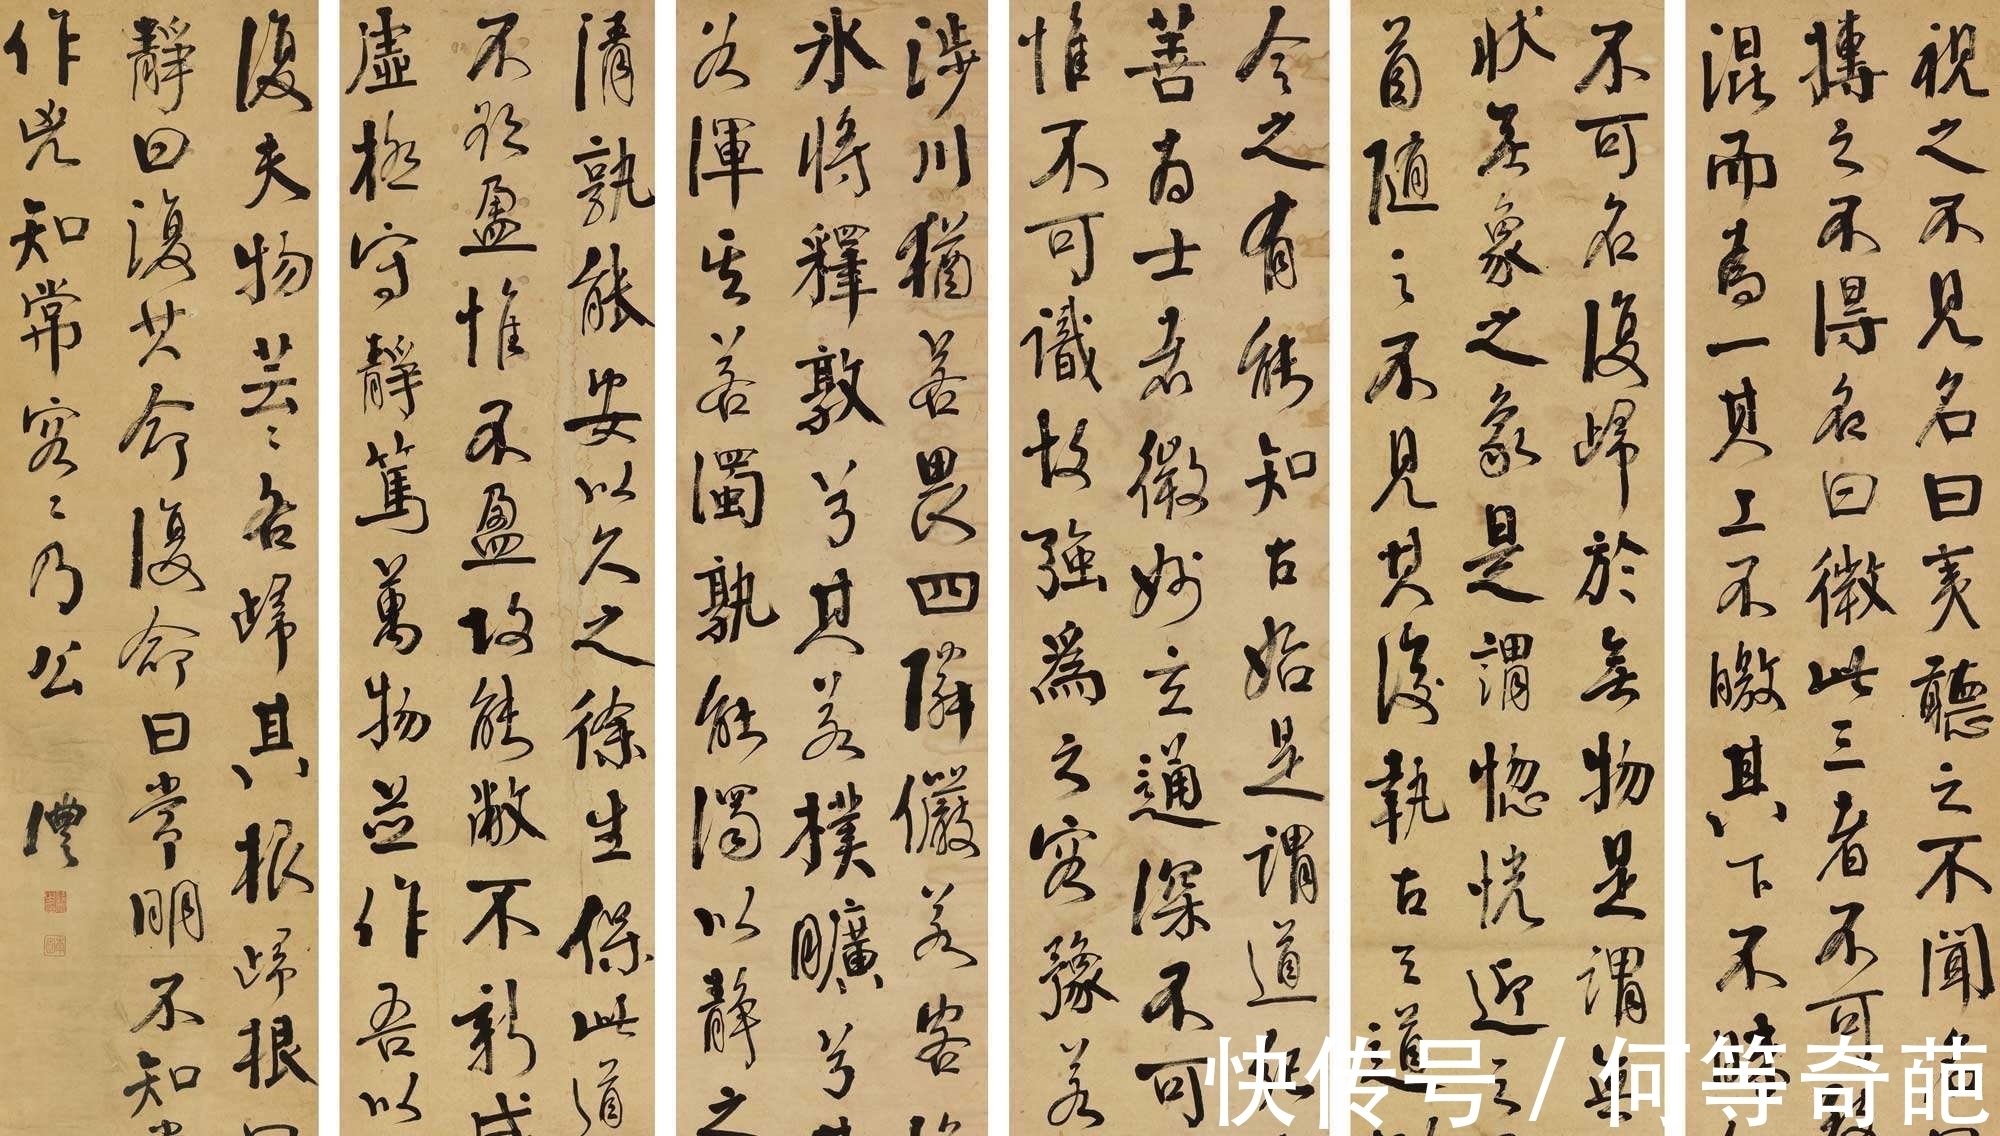 視之不見名曰夷聽之不聞名
搏之不得名曰微此三者不可致
混而為一其上不皦其下不昧
不可名復歸於無物是謂無
狀無象之象是謂惚恍迎之
首隨之不見其後執古之道
今之有能知古始是謂道紀
善為士者微妙玄通深不可
惟不可識故強為之容豫若
涉川猶若畏四鄰儼若客
冰將釋敦兮其若樸曠兮其
谷渾其若濁孰能濁以靜之
清孰能安以久之徐生保此道
不欲盈惟不盈故能敝不新成
虛極守靜篤萬物並作吾以
復夫物芸芸各歸其根歸根曰
靜曰復其命復命曰常明不知常
作凶知常容容乃公
澧
快传号/何等奇葩